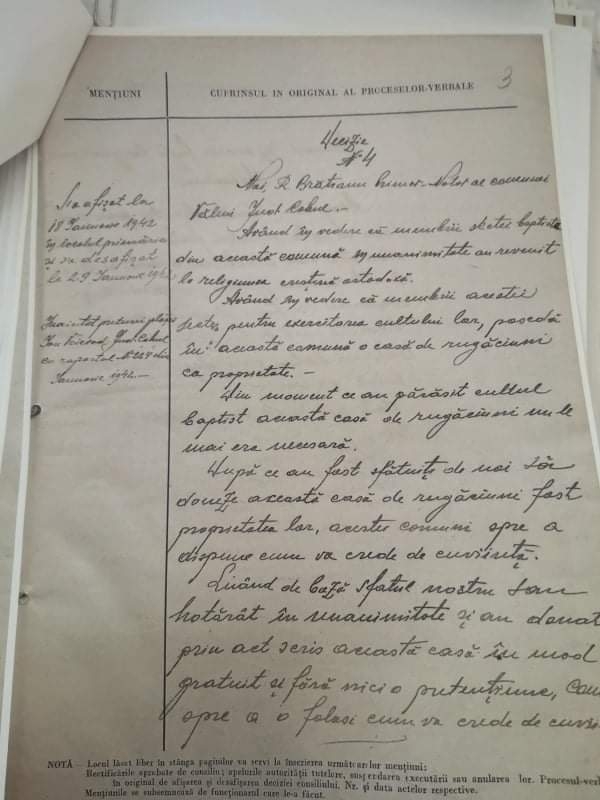 3
MENȚIUNI
CUPRINSUL IN ORIGINAL AL PROCESELOR-VERBALE
Decizie
No 4
Noi, R. Brateanu Primar-Notar al comunei
Văleni Jud. Cahul.-
Având în vedere că membrii sectei baptiste
din această comună în unanimitate au revenit
la religiunea creștină ortodoxă.
Având în vedere că membrii acestei
secte, pentru exercitarea cultului lor, posedă
în această comună o casă de rugăciuni
ca proprietate. -
Din moment ce au părăsit cultul
baptist această casă de rugăciuni nu le
mai era necesară.
După ce au fost sfătuiți de noi să
doneze această casă de rugăciuni fost
proprietatea lor, acestei comuni spre a
dispune cum va crede de cuviință.
Luând de bază sfatul nostru s-au
hotărât în unanimitate și au donat
prin act scris această casă în mod
gratuit și fără nici o pretențiune,
spre a o folosi cum va crede de cuvii
S'a afișat la
18 Ianuarie 1942
în localul primăriei
și s'a desafișat
la 29 Ianuarie 194
Înaintat preturii plășii
Jud. Cahul
cu raportul No. 228 din
Ianuarie 1942.-
NOTĂ - Locul lăsat liber în stânga paginilor va servi la înscrierea următoarelor mențiuni:
Rectificările aprobate de consiliu; apelurile autorității tutelare, suspendarea executării sau anularea lor. Procesul-verb
în original de afișarea și desafișarea deciziei consiliului, Nr. și data actelor respective.
Mențiunile se subsemnează de funcționarul care le-a făcut.